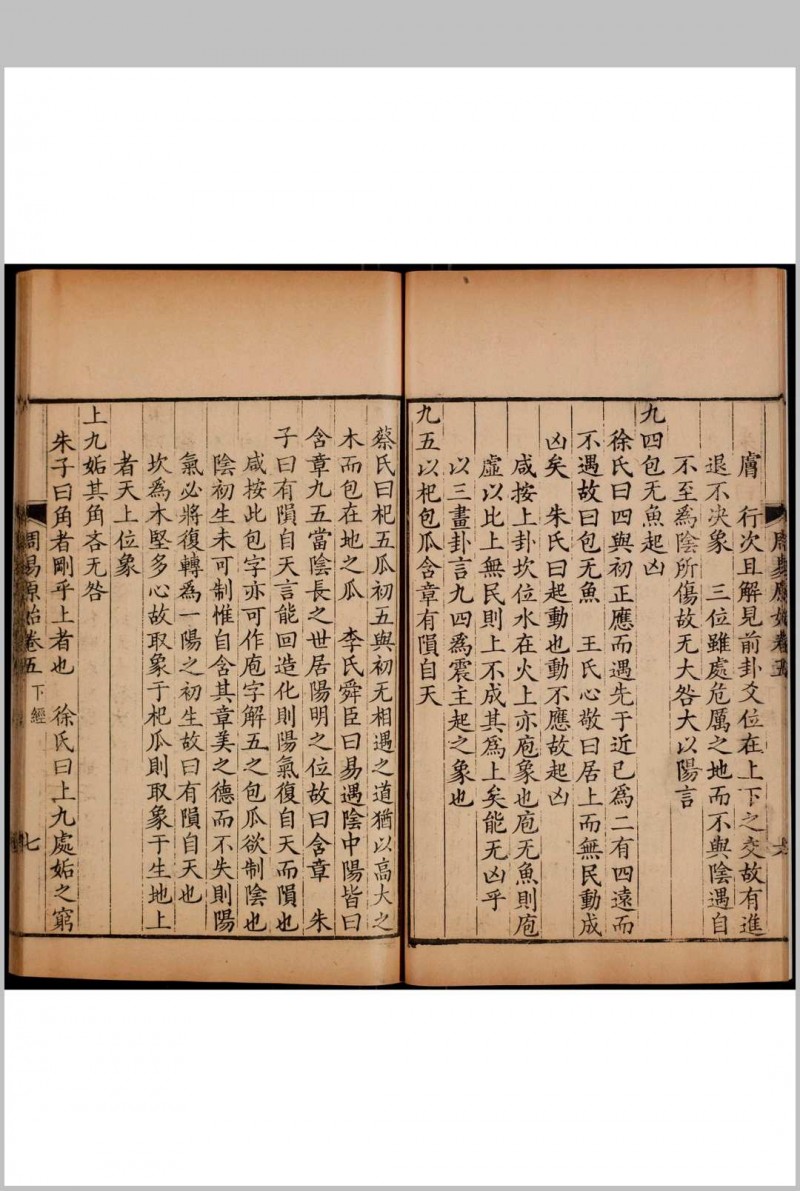 膚　行次且解見前卦爻位在上下之交故有進
退不决象　三位雖處危厲之地而不與陰遇自
不至爲陰所傷故无大咎大以陽言
九四包无魚起凶
徐氏曰四與初正應而遇先于近已爲二有四遠而
不遇故曰包无魚　王氏心敬曰居上而無民動成
凶矣　朱氏曰起動也動不應故起凶
咸按上卦坎位水在火上亦庖象也庖无魚則庖
虛以比上無民則上不成其爲上矣能无凶乎
以三畫卦言九四爲震主起之象也
九五以杞包瓜含章有隕自天
蔡氏曰杞五瓜初五與初无相遇之道猶以高大之
木而包在地之瓜　李氏舜臣曰易遇陰中陽皆曰
含章九五當陰長之世居陽明之位故曰含章　朱
子曰有隕自天言能回造化則陽氣復自天而隕也
咸按此包字亦可作庖字解五之包瓜欲制陰也
陰初生未可制惟自含其章美之德而不失則陽
氣必將復轉爲一陽之初生故曰有隕自天也
坎爲木堅多心故取象于杞瓜則取象于生地上
者天上位象
上九姤其角吝无咎
朱子曰角者剛乎上者也　徐氏曰上九處姤之窮
周易原始卷五　下經　七